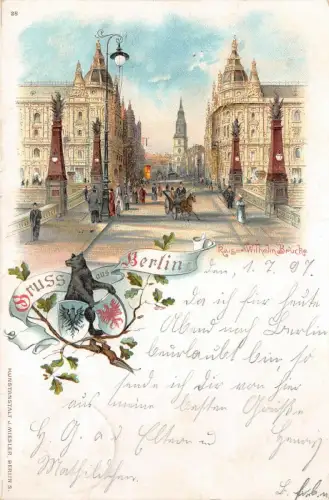 99
Kaiser Wilhelm Brücke
Gruss aus Berlin
den, 1.7.97.
Da ich für heute
Abend nach Berlin
beurlaubt bin, so
sende ich Dir von hier
aus meine besten Grüße
H. G. a d Eltern u
Mathilde
KUNSTANSTALT J. MIESLER, BERLIN S.